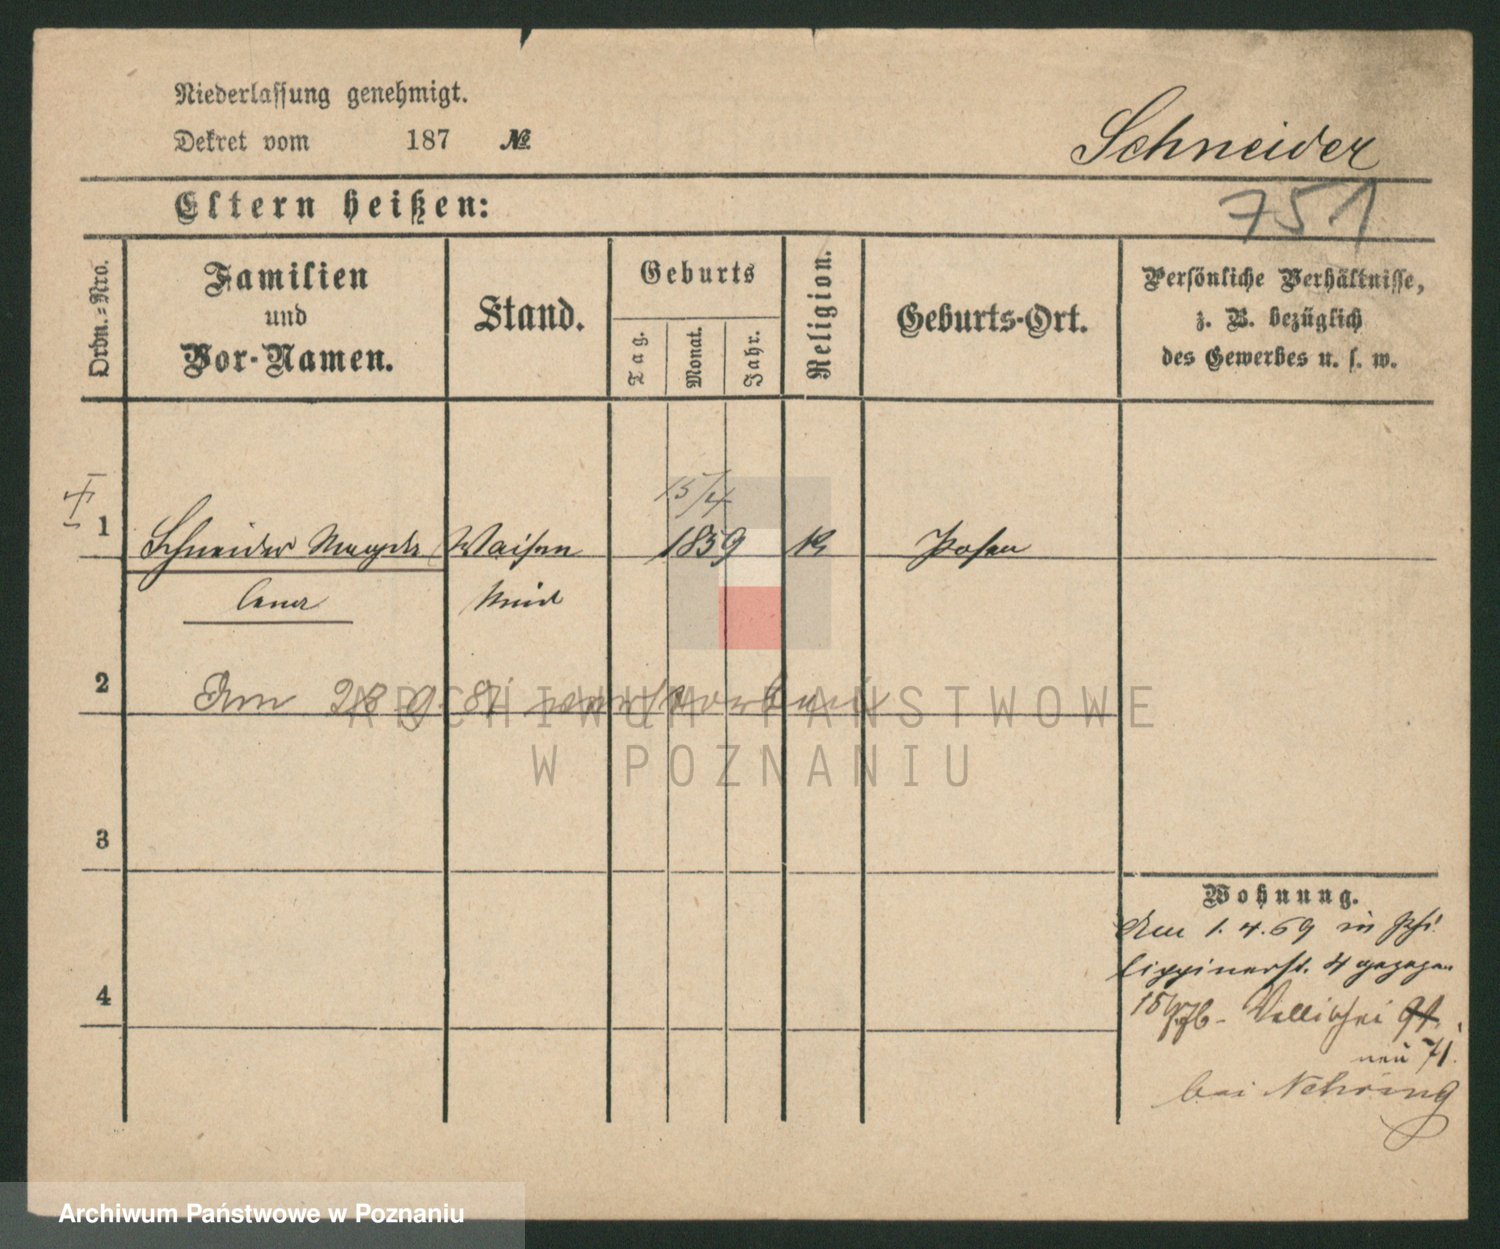 Niederlassung genehmigt.
Dekret vom 187 №
Schneider
Eltern heißen:
751
Ordn.-Nro.
Familien
und
Vor-Namen.
Stand.
Geburts
Tag.
Monat.
Jahr.
Religion.
Geburts-Ort.
Persönliche Verhältnisse,
z. B. bezüglich
des Gewerbes u. s. w.
15/4
1 Schneider Magda Waisen 1859 K Posen
lena Kind
2 Am 28 9. 81 verstorben
ARCHIWUM PAŃSTWOWE
W POZNANIU
3
Wohnung.
Am 1. 4. 69 in Phi
lippinerst. 4 gezogen
4
15/9 76 - Wallischei
neu 71.
bei Nehring
Archiwum Państwowe w Poznaniu